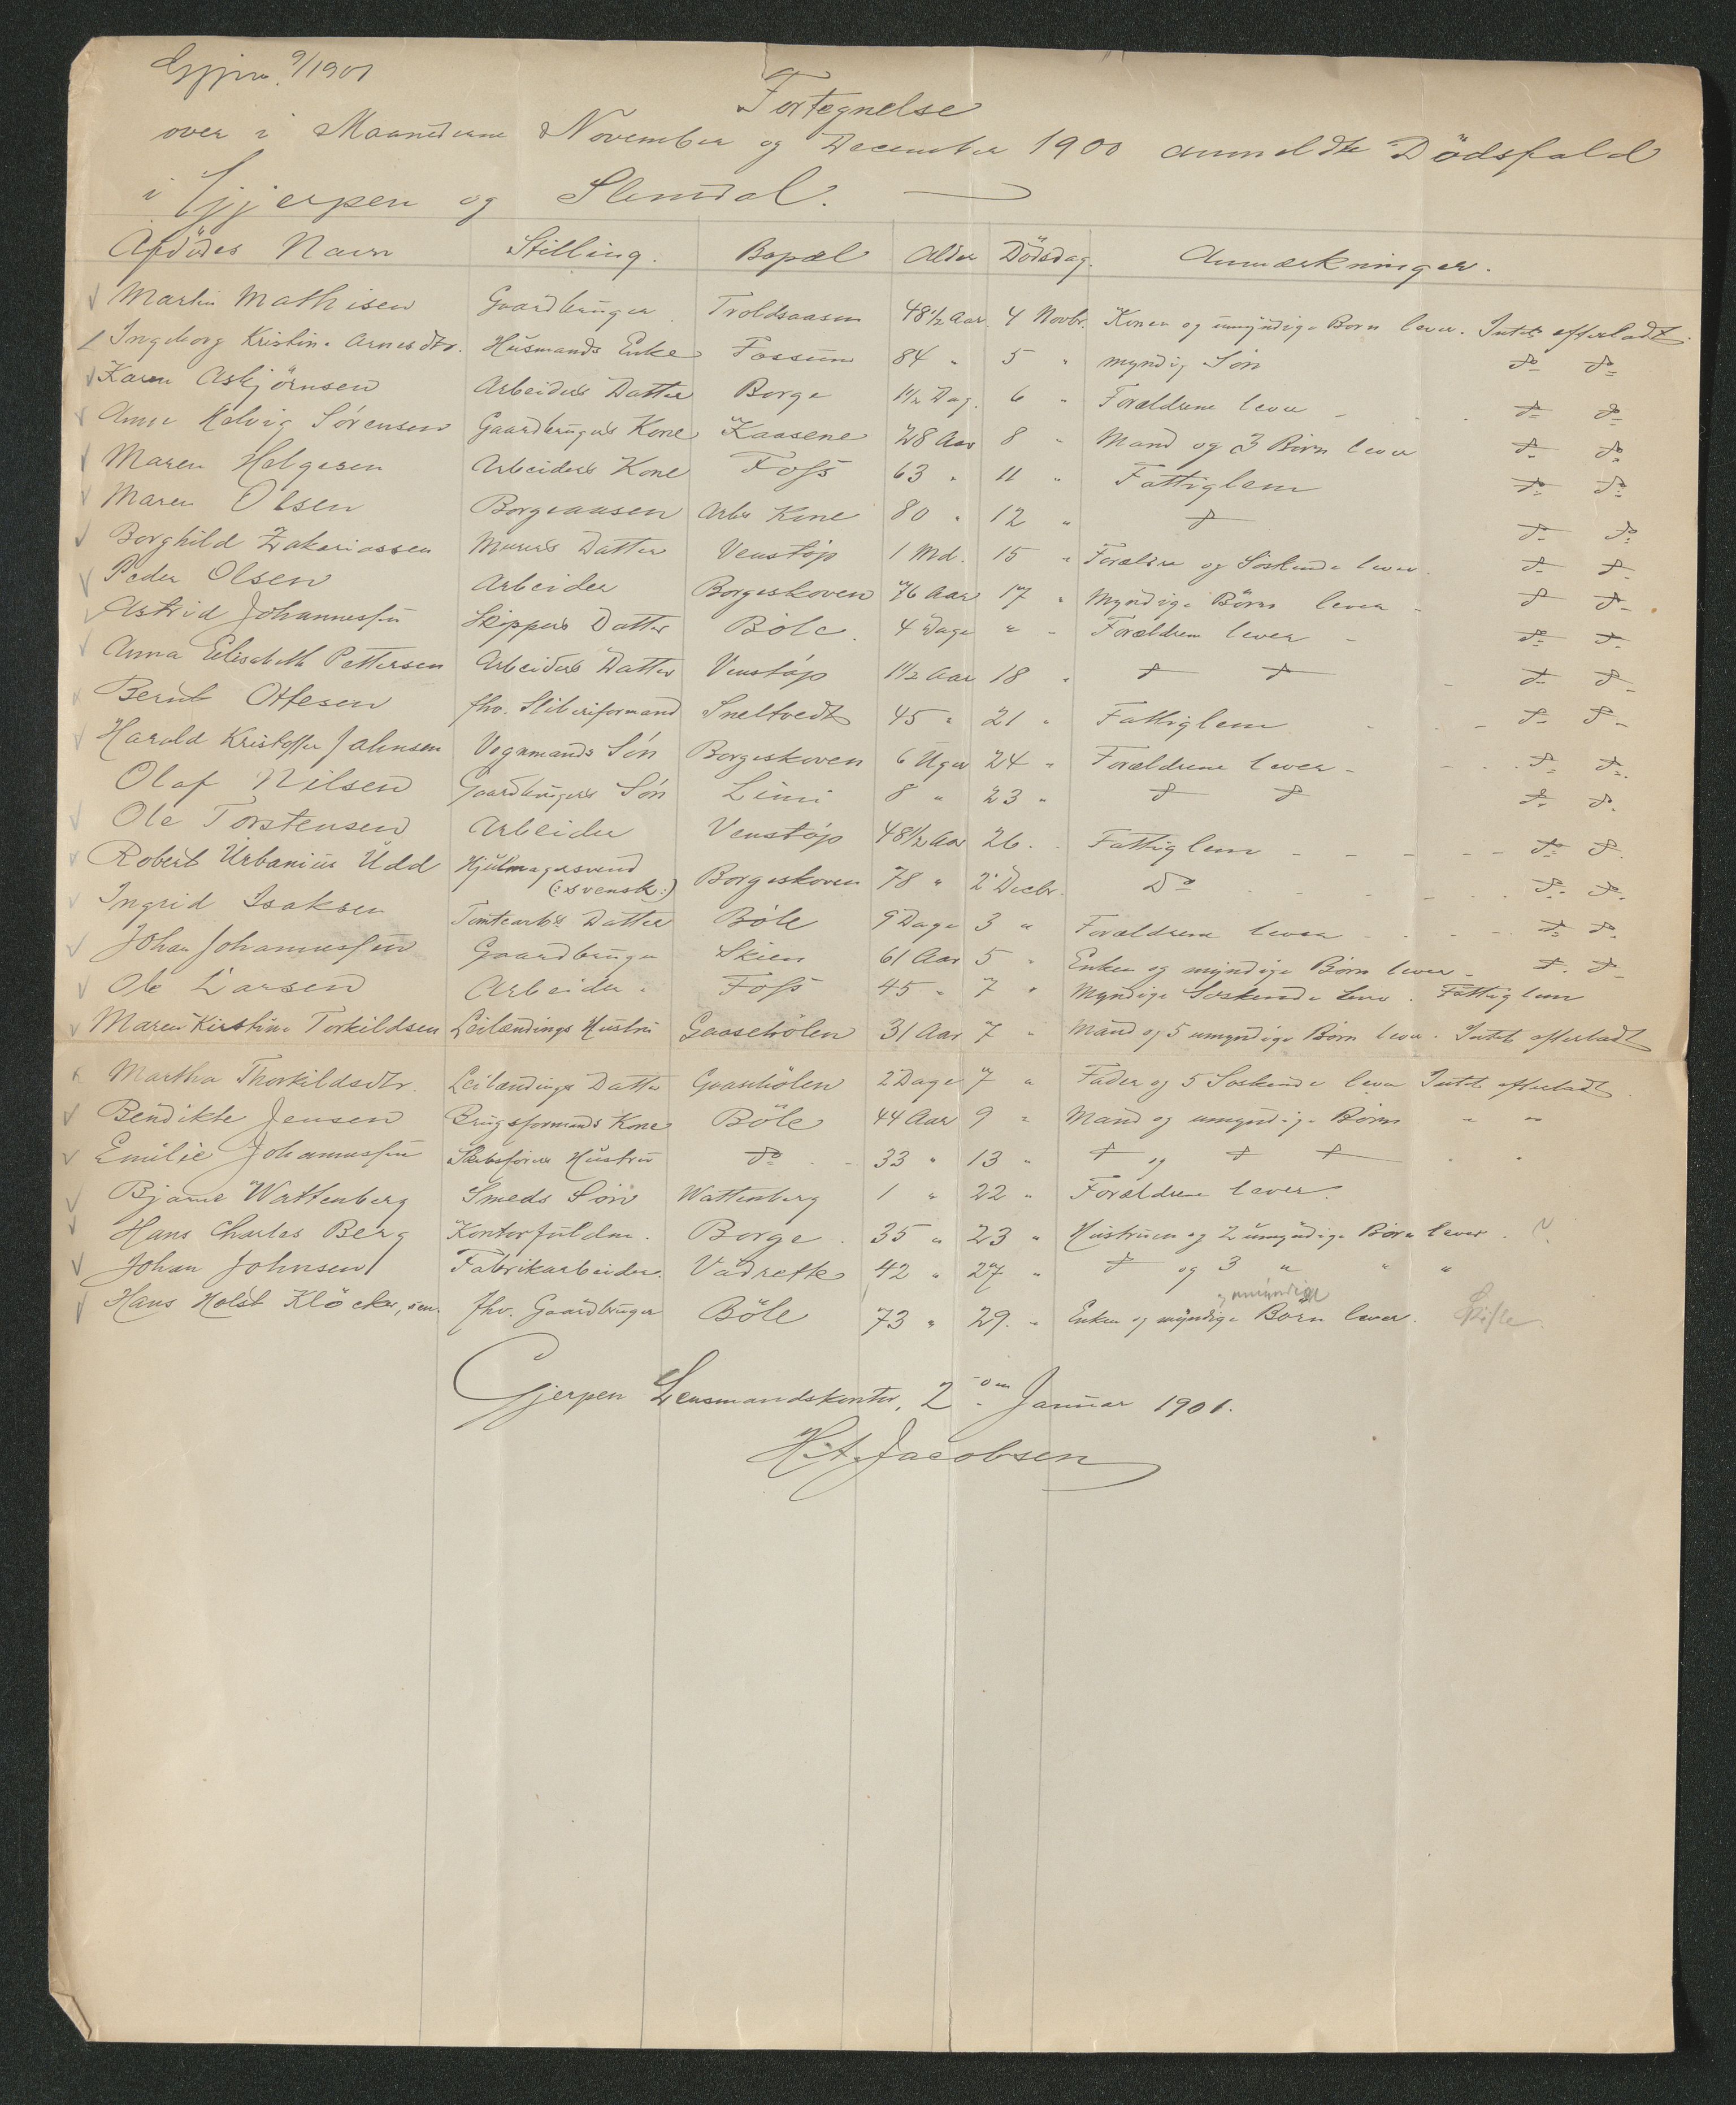 9/1901
Fortegnelse
over i Maanederne November og December 1900 anmeldte Dödsfald
i Gjerpen og Slemdal.
Afdödes Navn Stilling. Bopæl Alder Dödsdag. Anmærkninger.
Martin Mathisen Gaardbruger Troldsaasen 48½ Aar 4 Novbr. Konen og umyndige Born lever. Intet efterladt.
Ingeborg Kristine Arnesdtr. Husmands Enke Fossum 84 " 5 " myndig Sön do do
Karen Asbjörnsen Arbeiders Datter Borge 1½ Dag. 6 " Forældrene lever do do
Anne Helvig Sörensen Gaardbrugers Kone Kaasene 28 Aar 8 " Mand og 3 Börn lever do do
Maren Helgesen Arbeiders Kone Foss 63 " 11 " Fattiglem do do
Maren Olsen Borgeaasen Arbs Kone 80 " 12 " do do do
Borghild Zakariassen Murers Datter Venstöp 1 Md. 15 " Forældre og Söskende lever. do do
Peder Olsen Arbeider Borgeskoven 76 Aar 17 " Myndige Börn lever do do
Astrid Johannessen Skippers Datter Böle. 4 Dage " " Forældrene lever do do
Anna Elisabeth Pettersen Arbeiders Datter Venstöp 1½ Aar 18 " do do do do
Bernt Ottesen fhv. Sliberiformand Sneltvedt 45 " 21 " Fattiglem do do
Harald Kristoffer Jahnsen Vognmands Sön Borgeskoven 6 Uger 24 " Forældrene lever do do
Olaf Nilsen Gaardbrugers Sön Limi 8 " 23 " do do do do
Ole Torstensen Arbeider Venstöp 48½ Aar 26. Fattiglem do do
Robert Urbanius Udd Hjulmagersvend
(: svensk :) Borgeskoven 78 " 2 Decbr. Do do do
Ingrid Isaksen Tomtearbs Datter Böle 9 Dage 3 " Forældrene lever do do
Johan Johannessen Gaardbruger Skien 61 Aar 5 " Enken og myndige Börn lever do do
Ole Larsen Arbeider. Foss 45 " 7 " Myndige Söskende lever. Fattiglem
Maren Kirstine Torkildsen Leilændings Hustru Gaasehölen 31 Aar 7 " Mand og 5 umyndige Börn lever. Intet efterladt
Martha Thorkildsdtr. Leilændings Datter Gaasehölen 2 Dage 7 " Fader og 5 Söskende lever Intet efterladt.
Bendikte Jensen Brugsformands Kone Böle 44 Aar 9 " Mand og umyndige Börn " "
Emilie Johannessen Skibsförers Hustru do 33 " 13 " do og do do " "
Bjarne Wattenberg Smeds Sön Wattenberg 1 " 22 " Forældrene lever.
Hans Charles Berg Kontorfuldm. Borge. 35 " 23 " Hustruen og 2 umyndige Börn lever.
Johan Johnsen Fabrikarbeider. Vadrette 42 " 27 " do og 3 " " "
og umyndige
Hans Holst Klöcker, sen. fhv. Gaardbruger Böle 73 " 29. " Enken og myndige Börn lever. Skifte.
Gjerpen Lensmandskontor, 2den Januar 1901.
H.A. Jacobsen